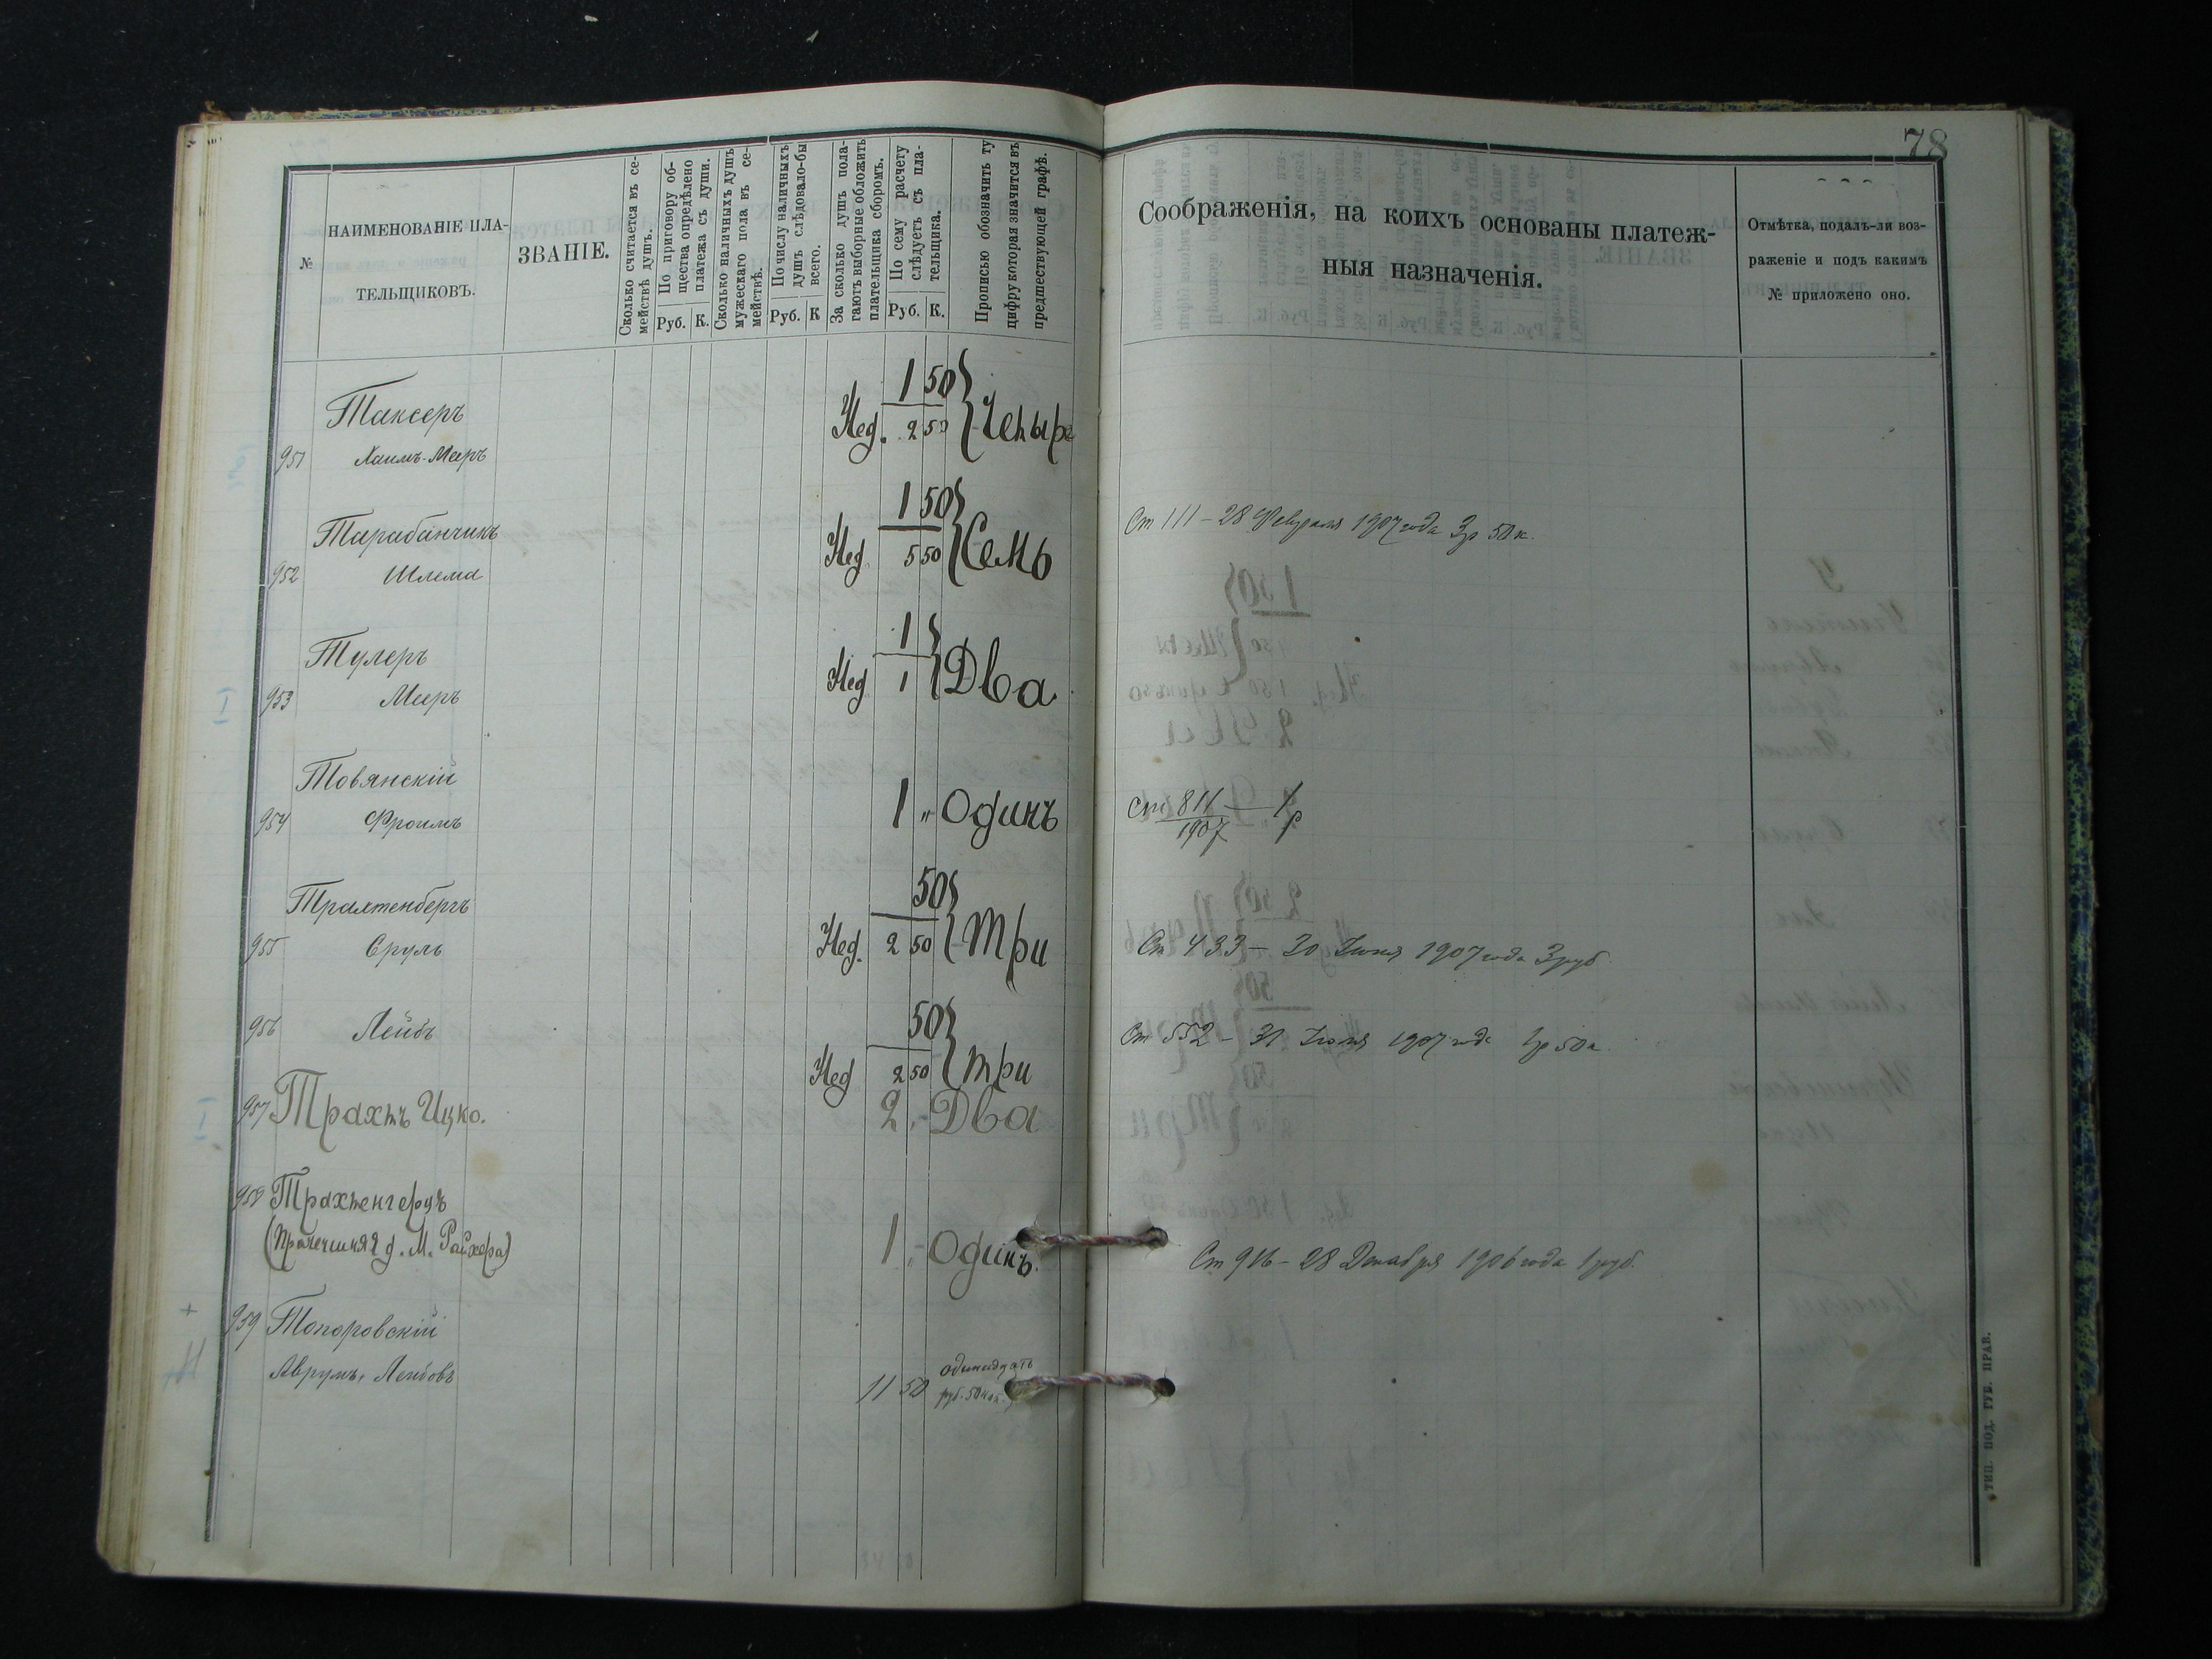 78
№
НАИМЕНОВАНІЕ ПЛА-
ТЕЛЬЩИКОВЪ.
ЗВАНІЕ.
Сколько считается въ се-
мействѣ душъ.
По приговору об-
щества опредѣлено
платежа съ души.
Руб. К.
Сколько наличныхъ душъ
мужескаго пола въ се-
мействѣ.
По числу наличныхъ
душъ слѣдовало-бы
всего.
Руб. К
За сколько душъ пола-
гаютъ выборные обложить
плательщика сборомъ.
По сему расчету
слѣдуетъ съ пла-
тельщика.
Руб. К.
Прописью обозначить ту
цифру которая значится въ
предшествующей графѣ.
Соображенія, на коихъ основаны платеж-
ныя назначенія.
Отмѣтка, подалъ-ли воз-
раженіе и подъ какимъ
№ приложено оно.
Таксеръ 1 50
951 Хаимъ-Меръ Нед. 2 50 Четыре
Тарабанчикъ 1 50
952 Шлема Нед. 5 50 Семь
Ст 111 - 28 Февраля 1907 года 3р 50к.
Тулеръ 1
953 Мееръ Нед 1 Два
Товянскій
954 Фроимъ 1 „ Одинъ
Ст 811 — 1р
1907
Трахтенбергъ 50
955 Сруль Нед. 2 50 Три
Ст 433 - 30 Іюня 1907 года 3 руб
956 Лейбъ 50
Нед 2 50 три
Ст 552 - 31 Іюля 1907 года 1р 50к.
957 Трахтъ Ицко. 2 „ Два
958 Трахтенгерцъ
д. М. Райхера) 1 „ Одинъ.
Ст 916 - 28 Декабря 1906 года 1 руб.
959 Топоровскій
Аврумъ, Лейбовъ 11 50 одинадцать
руб. 50 коп.
ТИП. ПОД. ГУБ. ПРАВ.